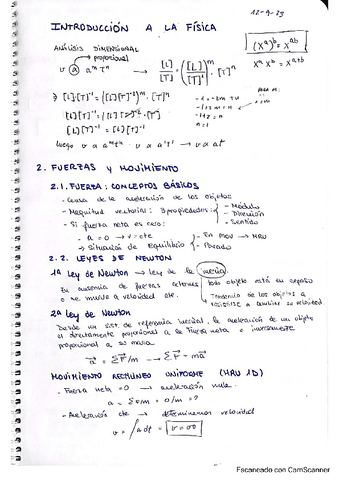 12-9-23
INTRODUCCIÓN A LA FÍSICA
ANÁLISIS DIMENSIONAL
proporcional
v α a^m T^n → [L]/[T] = ([L]/[T]²)^m · [T]^n
(X^a)^b = X^ab
X^a X^b = X^a+b
[L]·[T]^-1 = ([L][T]^-2)^m · [T]^n
-1 = -2m + n
n = 1
[L][T]^-1 = [L][T]^-1
luego v α a^m t^n → v α a't' → v α at
2. FUERZAS Y MOVIMIENTO
2.1. FUERZA: CONCEPTOS BÁSICOS
- Causa de la aceleración de los objetos
- Magnitud vectorial: 3 propiedades
- Módulo
- Dirección
- Sentido
- Si fuerza neta es cero:
- a = 0 → v = cte
- En mov → MRU
- Situación de Equilibrio
- Parado
2.2. LEYES DE NEWTON
1ª Ley de Newton → Ley de la inercia
En ausencia de fuerzas externas todo objeto está en reposo
o se mueve a velocidad cte.
Tendencia de los objetos a
resistirse a cambiar su velocidad.
2ª Ley de Newton
Desde un sist. de referencia inercial, la aceleración de un objeto
es directamente proporcional a la fuerza neta e inversamente
proporcional a su masa.
a = ΣF/m → ΣF = ma
MOVIMIENTO RECTILÍNEO UNIFORME (MRU 1D)
- Fuerza neta = 0 → aceleración nula.
a = ΣF/m = 0/m = 0
- Aceleración cte → determinamos velocidad
v = ∫a dt = v = v0
Escaneado con CamScanner